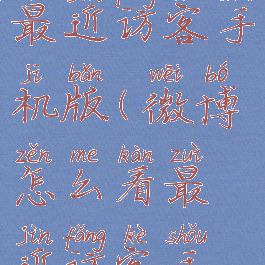 最近访客手
jī bǎn wēi bó
机版(微博
zěn me kàn zuì
怎么看最
jìn fǎng kè shǒu
近访客手